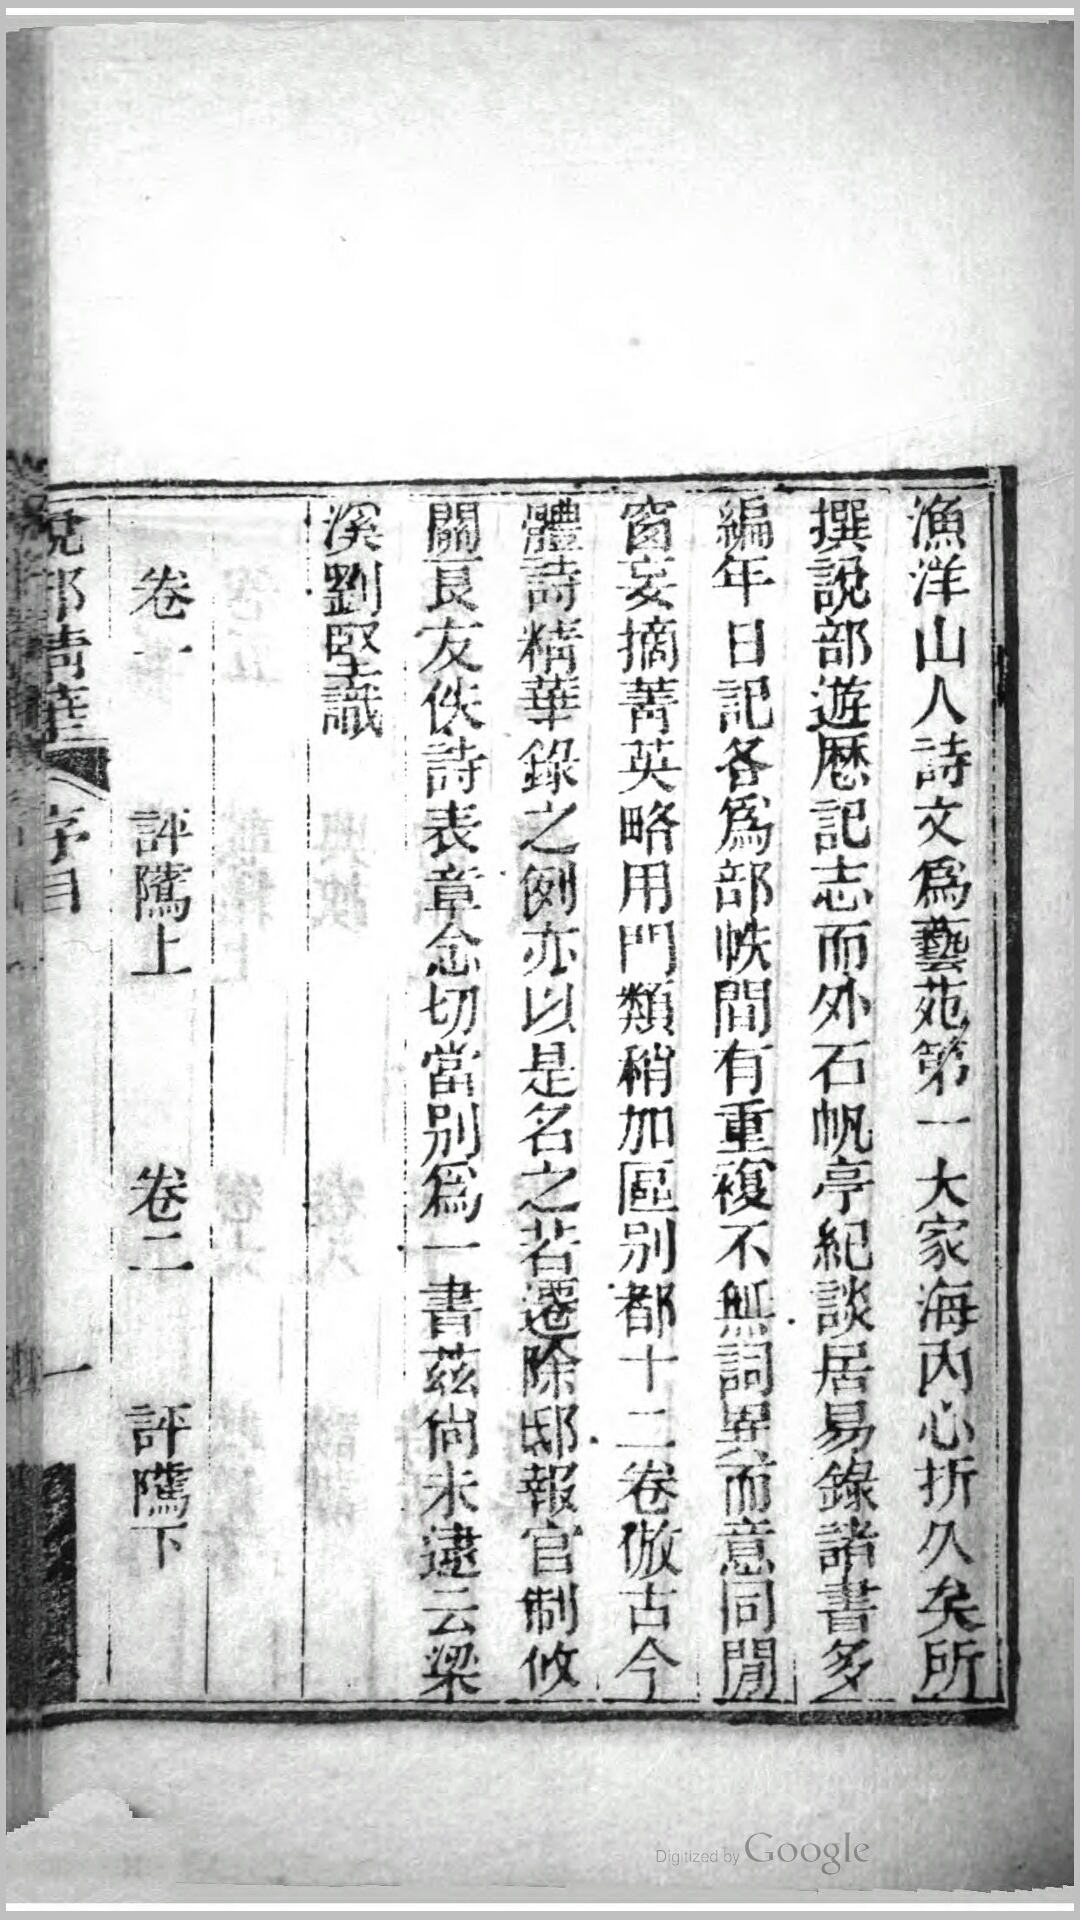 漁洋山人詩文爲藝苑第一大家海內心折久矣所
撰說部遊歷記志而外石帆亭紀談居易錄諸書多
編年日記各爲部帙間有重複不無詞異而意同閒
窗妄摘菁英略用門類稍加區別都十二卷倣古今
體詩精華錄之例亦以是名之若遷除邸報官制攸
關良友佚詩表章念切當別爲一書茲尙未逮云梁
溪劉堅識
卷一 評騭上 卷二 評騭下
說部精華 序目 一
Digitized by Google